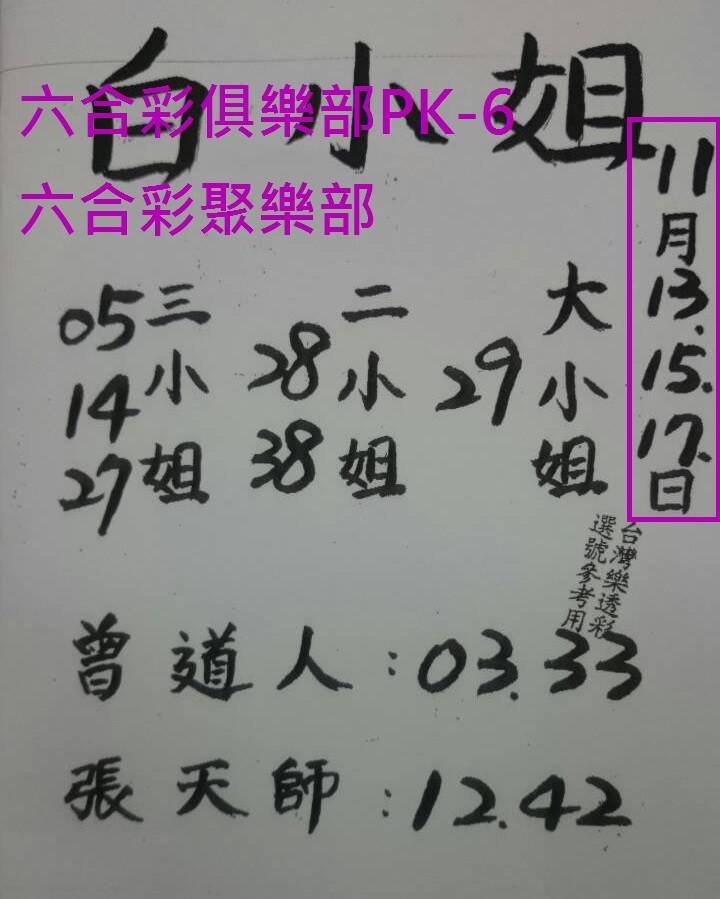 白小姐
六合彩俱樂部PK-6
六合彩聚樂部
11月13.15.17.日
大小姐
29
二小姐
28
38
三小姐
05
14
27
台灣樂透彩
選號參考用
曾道人:03.33
張天師:12.42